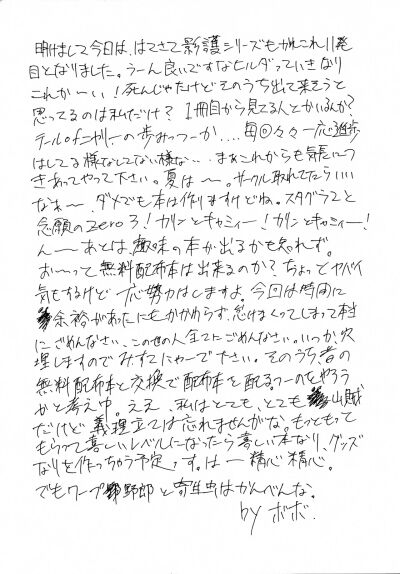 明けまして今日は、はてさて影護シリーズもかれこれ11発
目となりました。うーん良いですなヒルダっていきなり
これかーい！死んじゃたけどそのうち出て来そうと
思ってるのは私だけ？1冊目から見てる人とかいるんか？
テール of ニャリーの歩みっつーか....毎回々々一応進歩
はしてる様なしてない様な... まぁこれからも気長につ
きあってやって下さい。夏は〜。サークル取れてたらいい
なぁ〜 ダメでも本は作りますけどね。スタグラ2と
念願のzero3！カリンとキャミィー！カリンとキャミィー！
んーあとは、趣味の本が出るかも知れず。
お〜って無料配布本は出来るのか？ちょってヤバイ
気もするけど一応努力はしますよ。今回は時間に
余裕があったにもかかわらず、怠けまくってしまって本当
にごめんなさい、この世の人全てにごめんなさい。いつか穴
埋しますのでみすてにゃーで下さい。そのうち、者の
無料配布本と交換で配布本を配るつーのをやろう
かと考え中。ええ、私はとても、とても山賊
だけど義理立ては忘れませんがな。もっともって
もらって喜しいレベルになったら喜しい本なり、グッズ
なりを作っちゃう予定っす。はー精心精心。
でもワープ野郎と寄生虫はかんべんな。
by ボボ.